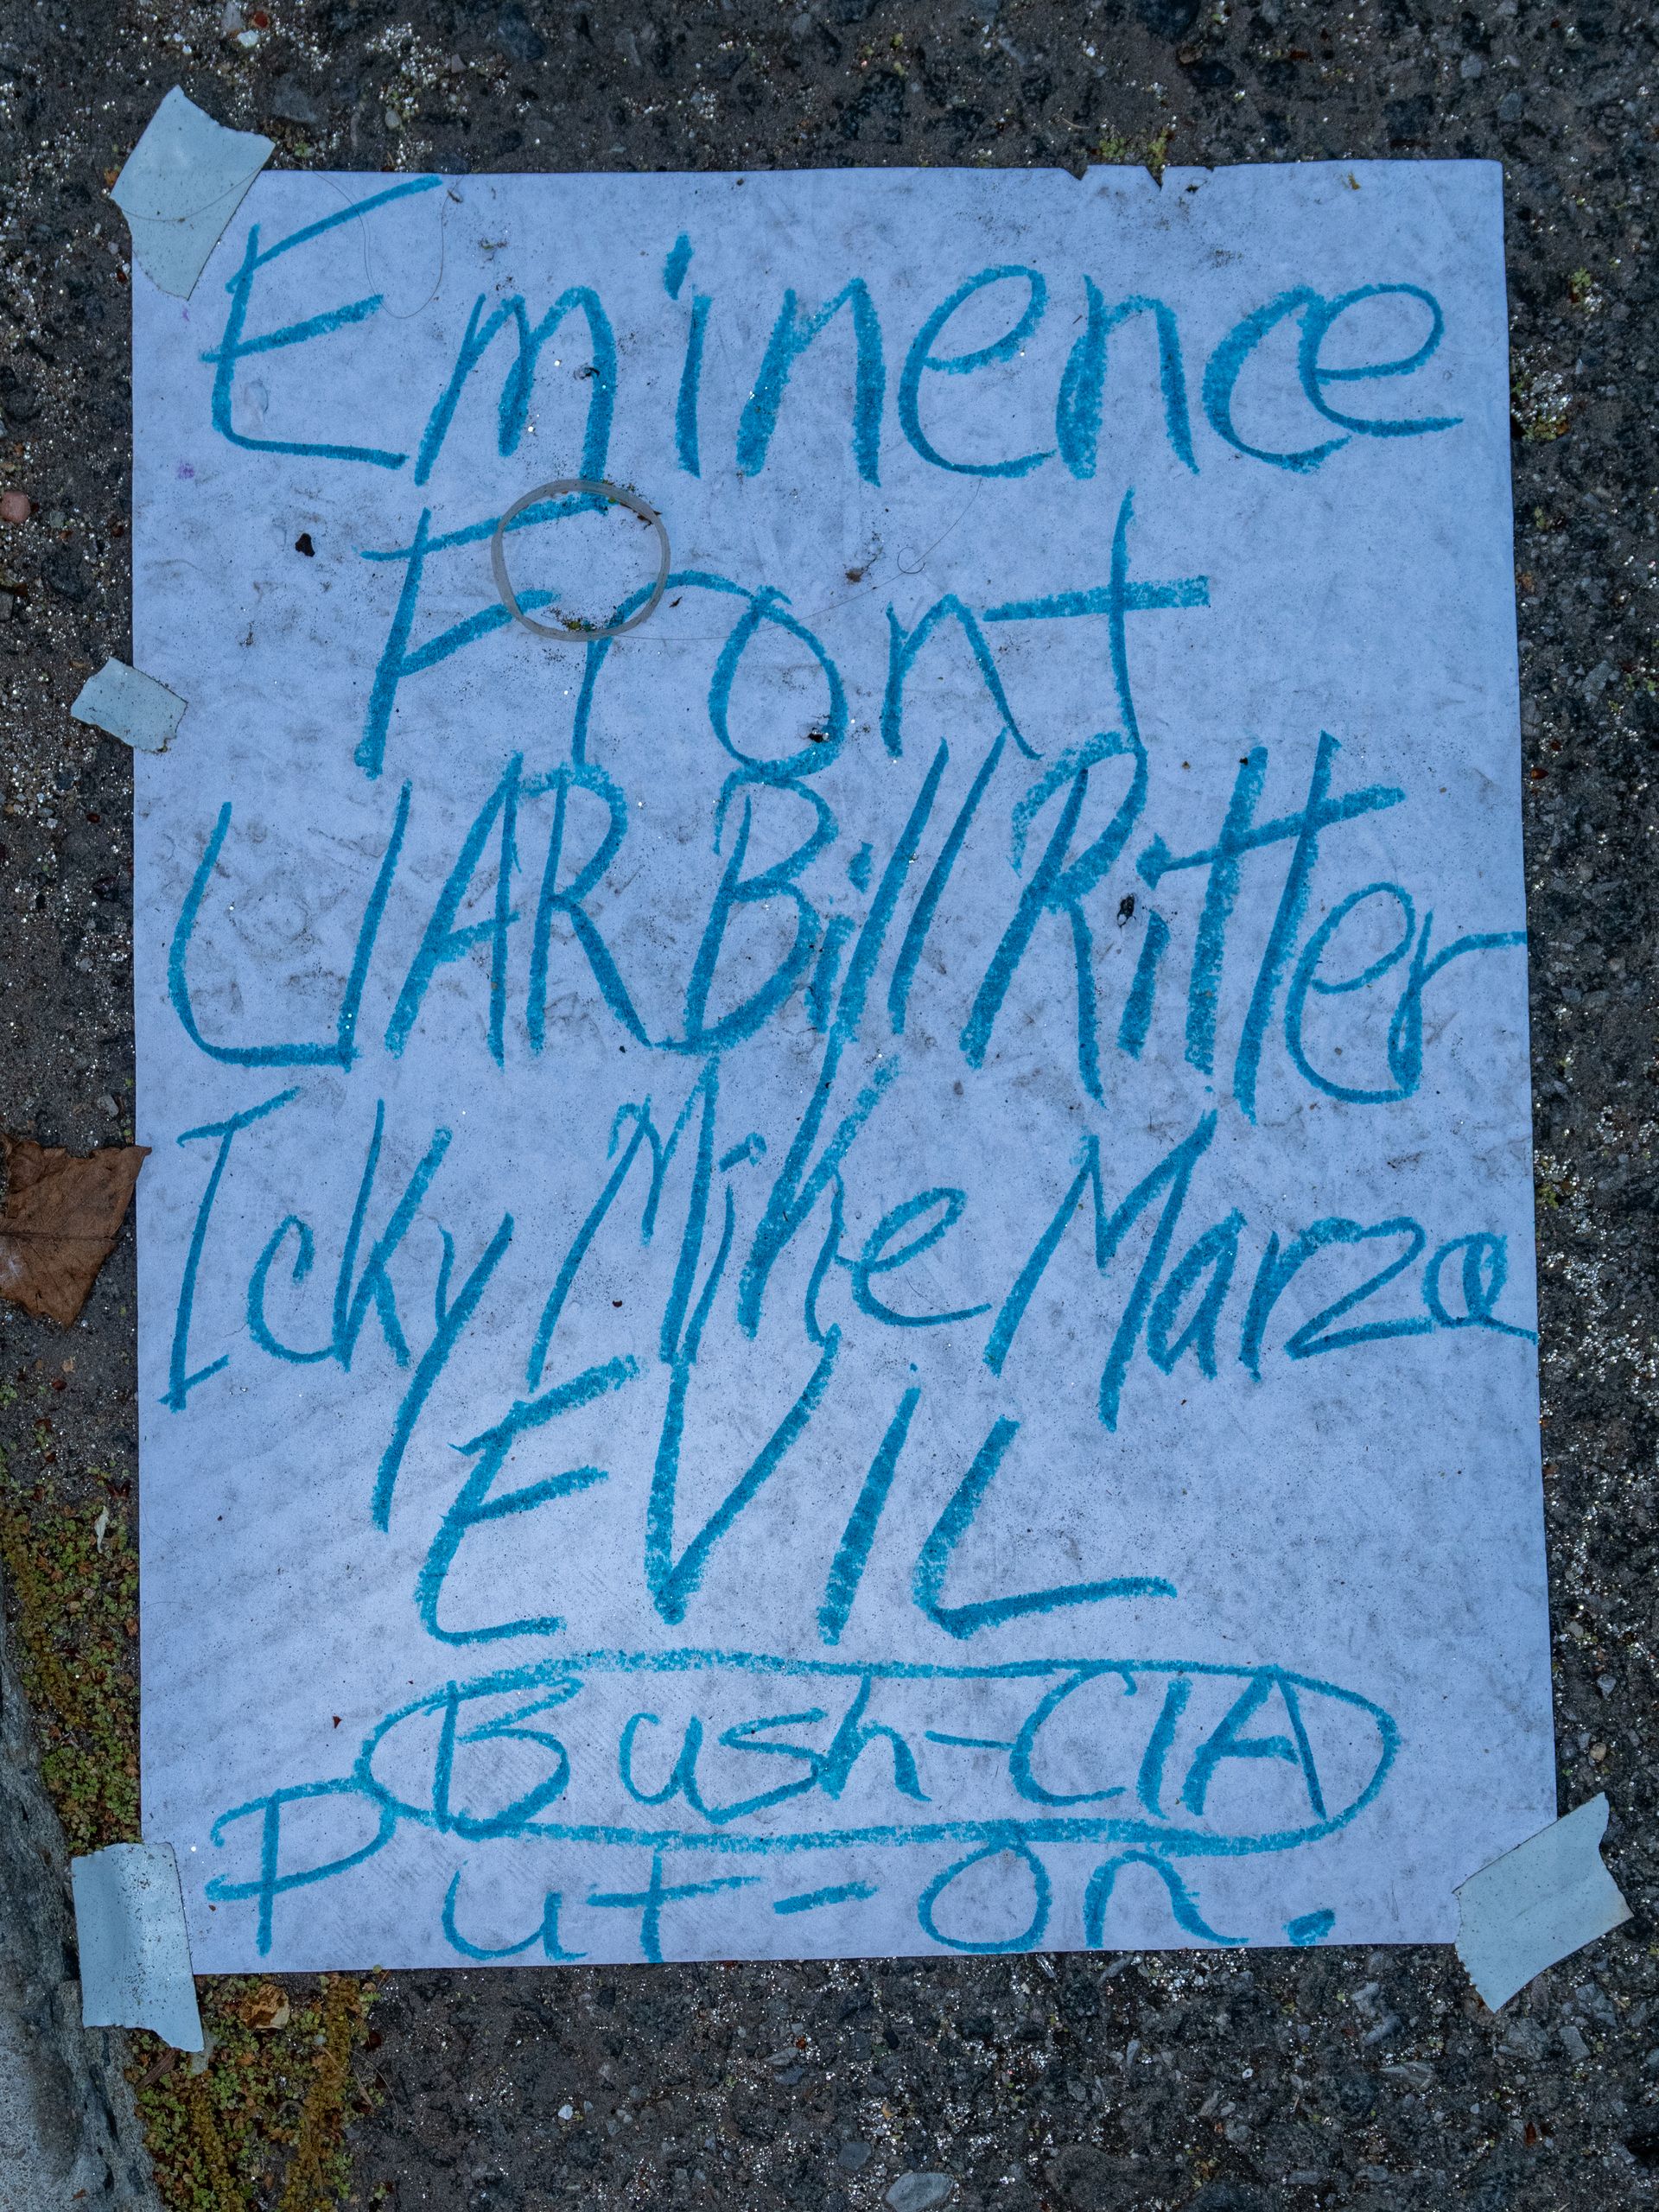 Eminence
Front
LIAR Bill Ritter
Icky Mike Marza
EVIL
Bush-CIA
Put-on.